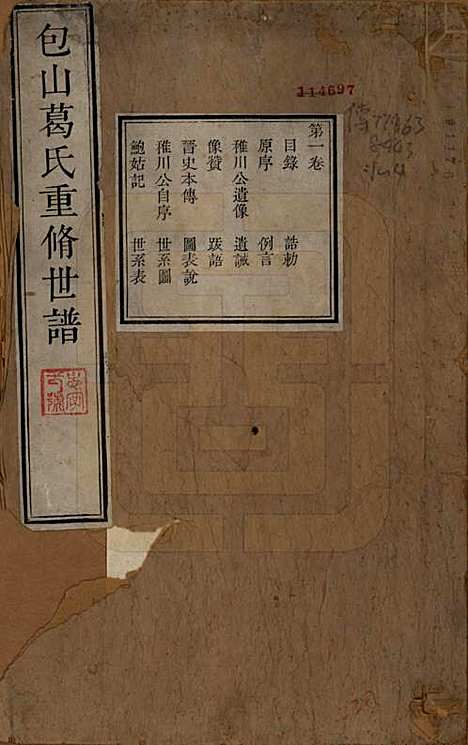 包山葛氏重脩世譜
114697
第一卷
目錄　誥勅
原序　例言
稚川公遺像　遺誡
像贊　跋語
晉史本傳　圖表說
稚川公自序　世系圖
鮑姑記　世系表